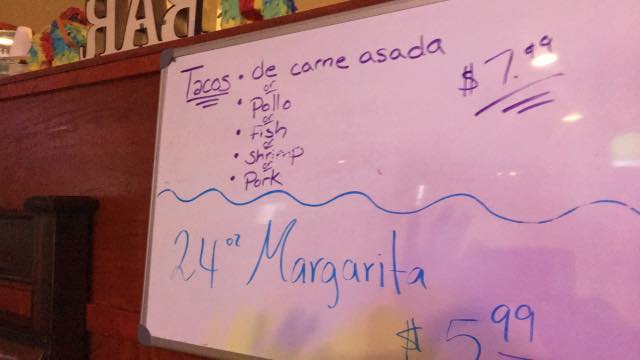 BAR
Tacos • de carne asada $7.99
or
• Pollo
or
• Fish
or
• Shrimp
or
• Pork
24 oz Margarita
$5.99